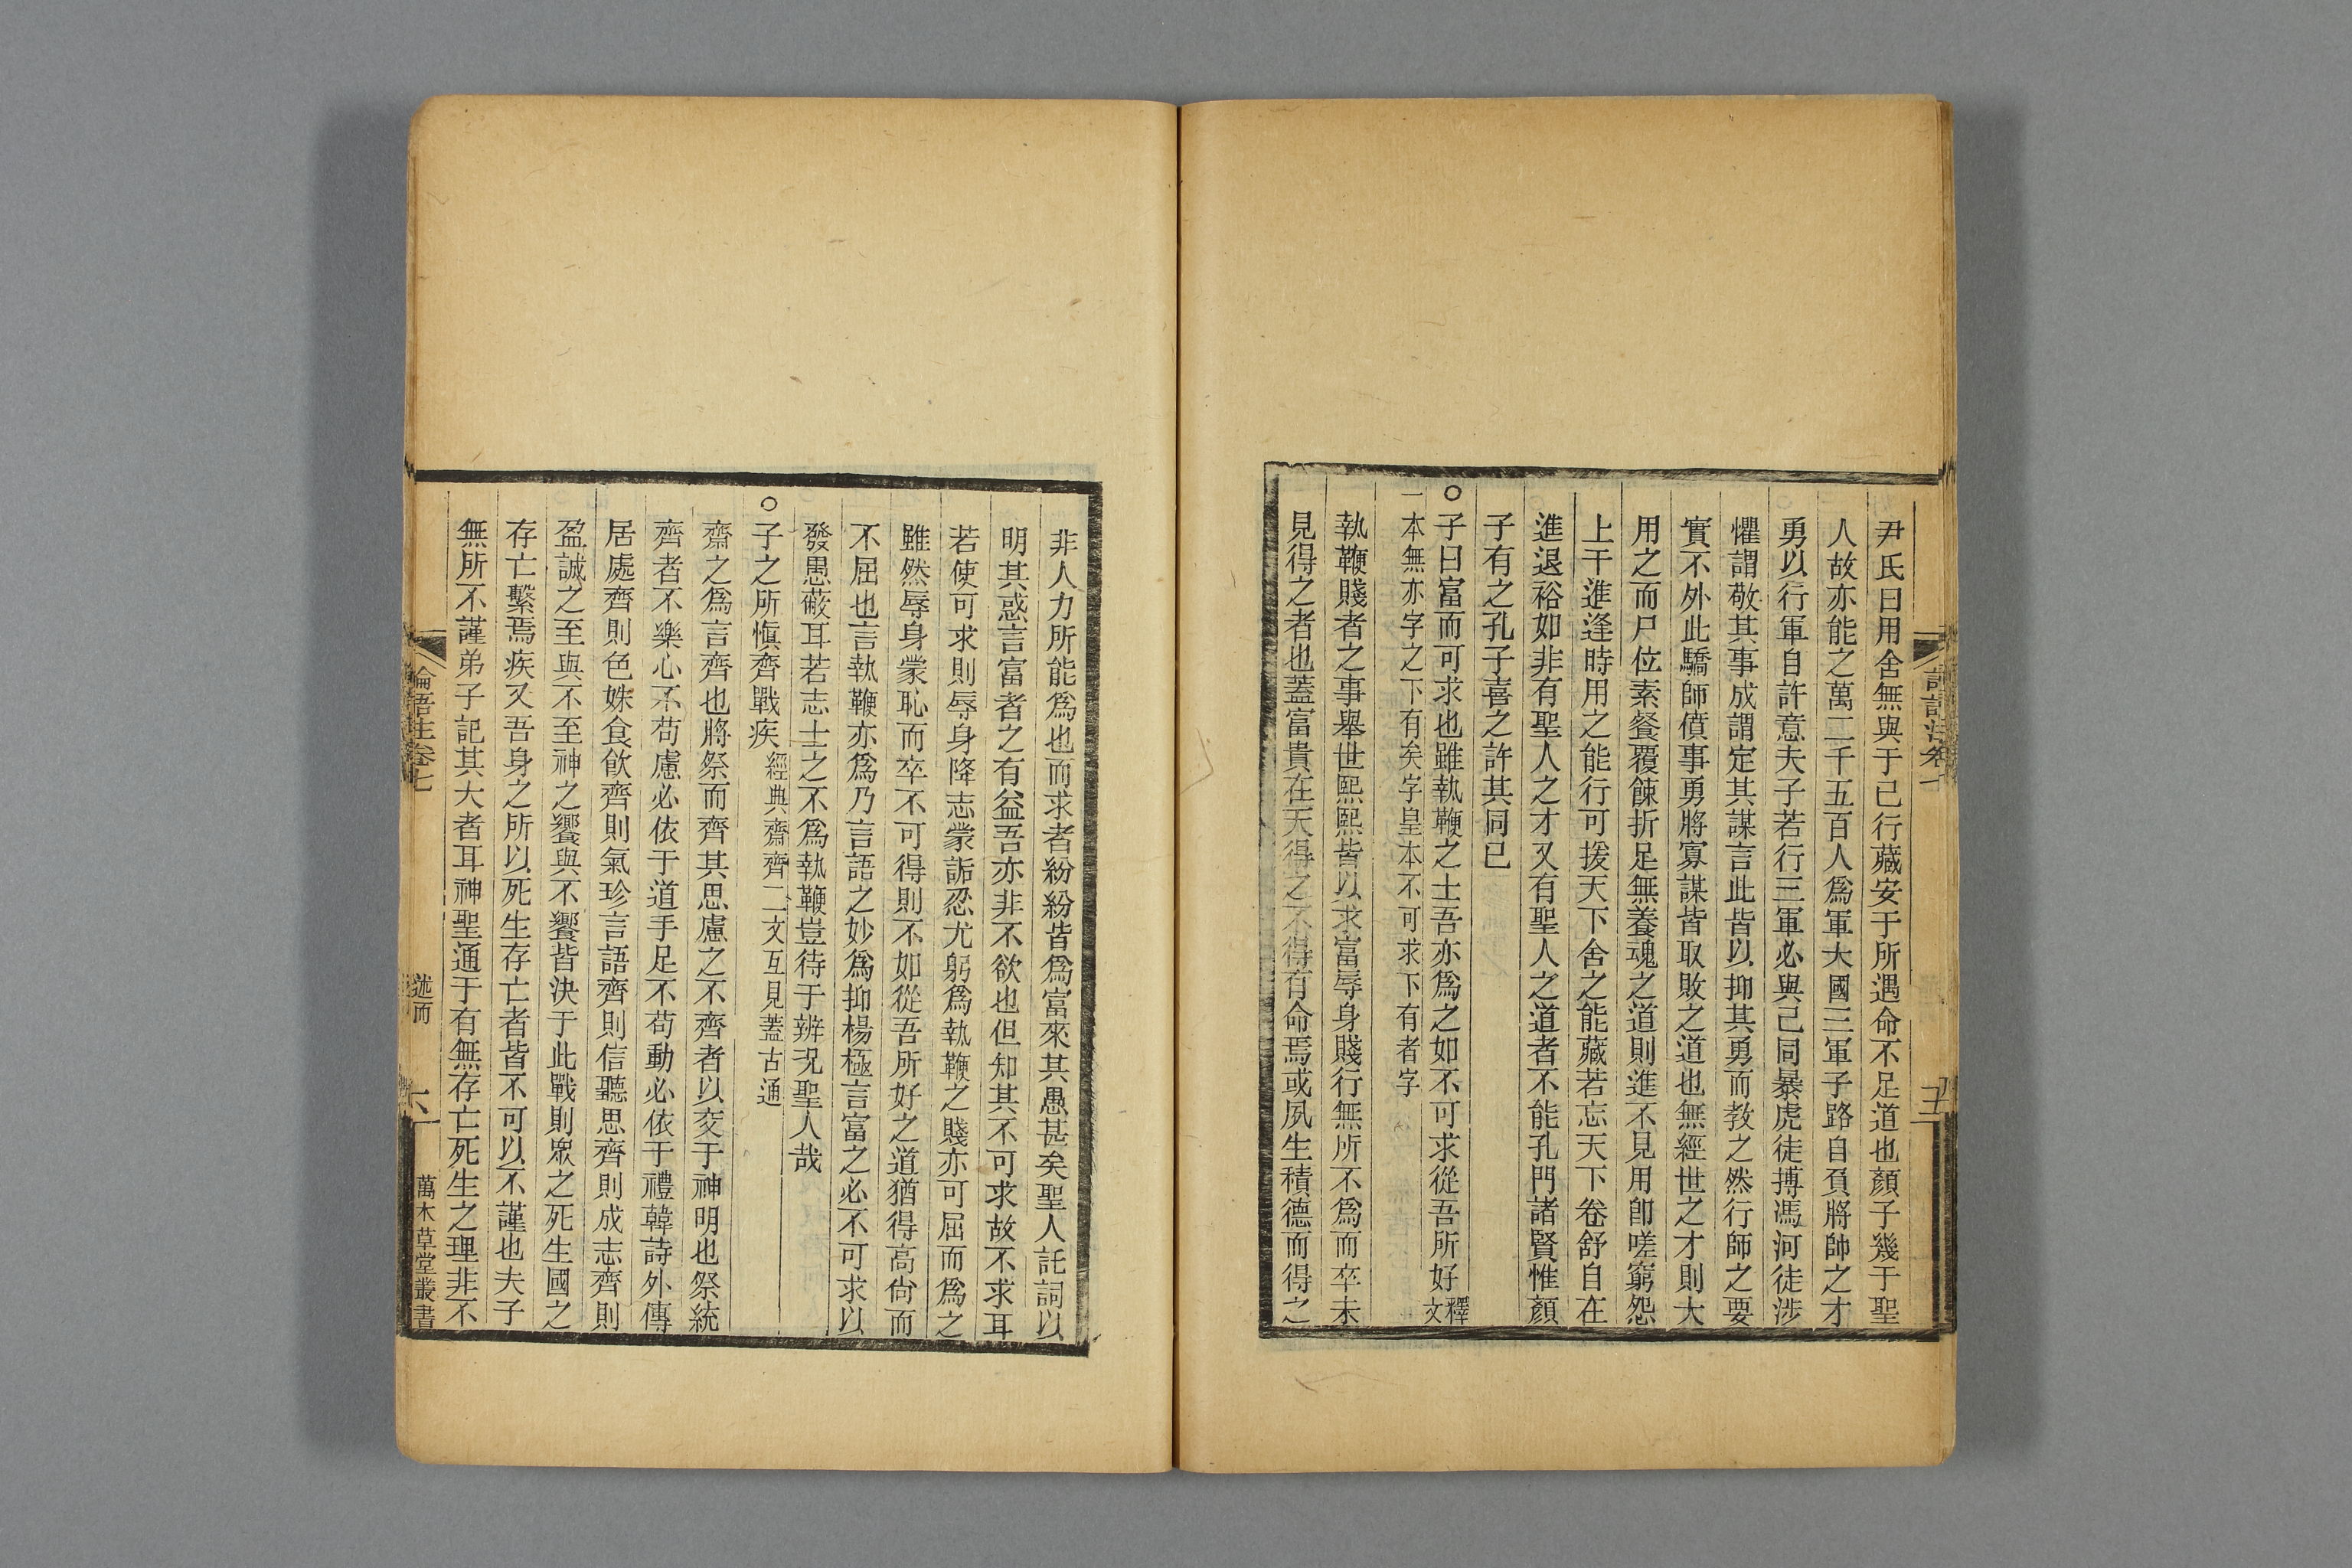 尹氏曰用舍無與于己行藏安于所遇命不足道也顏子幾于聖
人故亦能之萬二千五百人爲軍大國三軍子路自負將帥之才
勇以行軍自許意夫子若行三軍必與己同暴虎徒搏馮河徒涉
懼謂敬其事成謂定其謀言此皆以抑其勇而教之然行師之要
實不外此驕師僨事勇將寡謀皆取敗之道也無經世之才則大
用之而尸位素餐覆餗折足無養魂之道則進不見用卽嗟窮怨
上干進逢時用之能行可援天下舍之能藏若忘天下卷舒自在
進退裕如非有聖人之才又有聖人之道者不能孔門諸賢惟顏
子有之孔子喜之許其同已
○子曰富而可求也雖執鞭之士吾亦爲之如不可求從吾所好釋文
一本無亦字之下有矣字皇本不可求下有者字
執鞭賤者之事舉世熙熙皆以求富辱身賤行無所不爲而卒未
見得之者也蓋富貴在天得之不得有命焉或夙生積德而得之
五
非人力所能爲也而求者紛紛皆爲富來其愚甚矣聖人託詞以
明其惑言富者之有益吾亦非不欲也但知其不可求故不求耳
若使可求則辱身降志蒙詬忍尤躬爲執鞭之賤亦可屈而爲之
雖然辱身蒙恥而卒不可得則不如從吾所好之道猶得高尙而
不屈也言執鞭亦爲乃言語之妙爲抑楊極言富之必不可求以
發愚蔽耳若志士之不爲執鞭豈待于辨况聖人哉
○子之所愼齊戰疾經典齋齊二文互見蓋古通
齋之爲言齊也將祭而齊其思慮之不齊者以交于神明也祭統
齊者不樂心不苟慮必依于道手足不苟動必依于禮韓詩外傳
居處齊則色姝食飲齊則氣珍言語齊則信聽思齊則成志齊則
盈誠之至與不至神之饗與不饗皆決于此戰則眾之死生國之
存亡繫焉疾又吾身之所以死生存亡者皆不可以不謹也夫子
無所不謹弟子記其大者耳神聖通于有無存亡死生之理非不
論語注卷七
述而
六
萬木草堂叢書